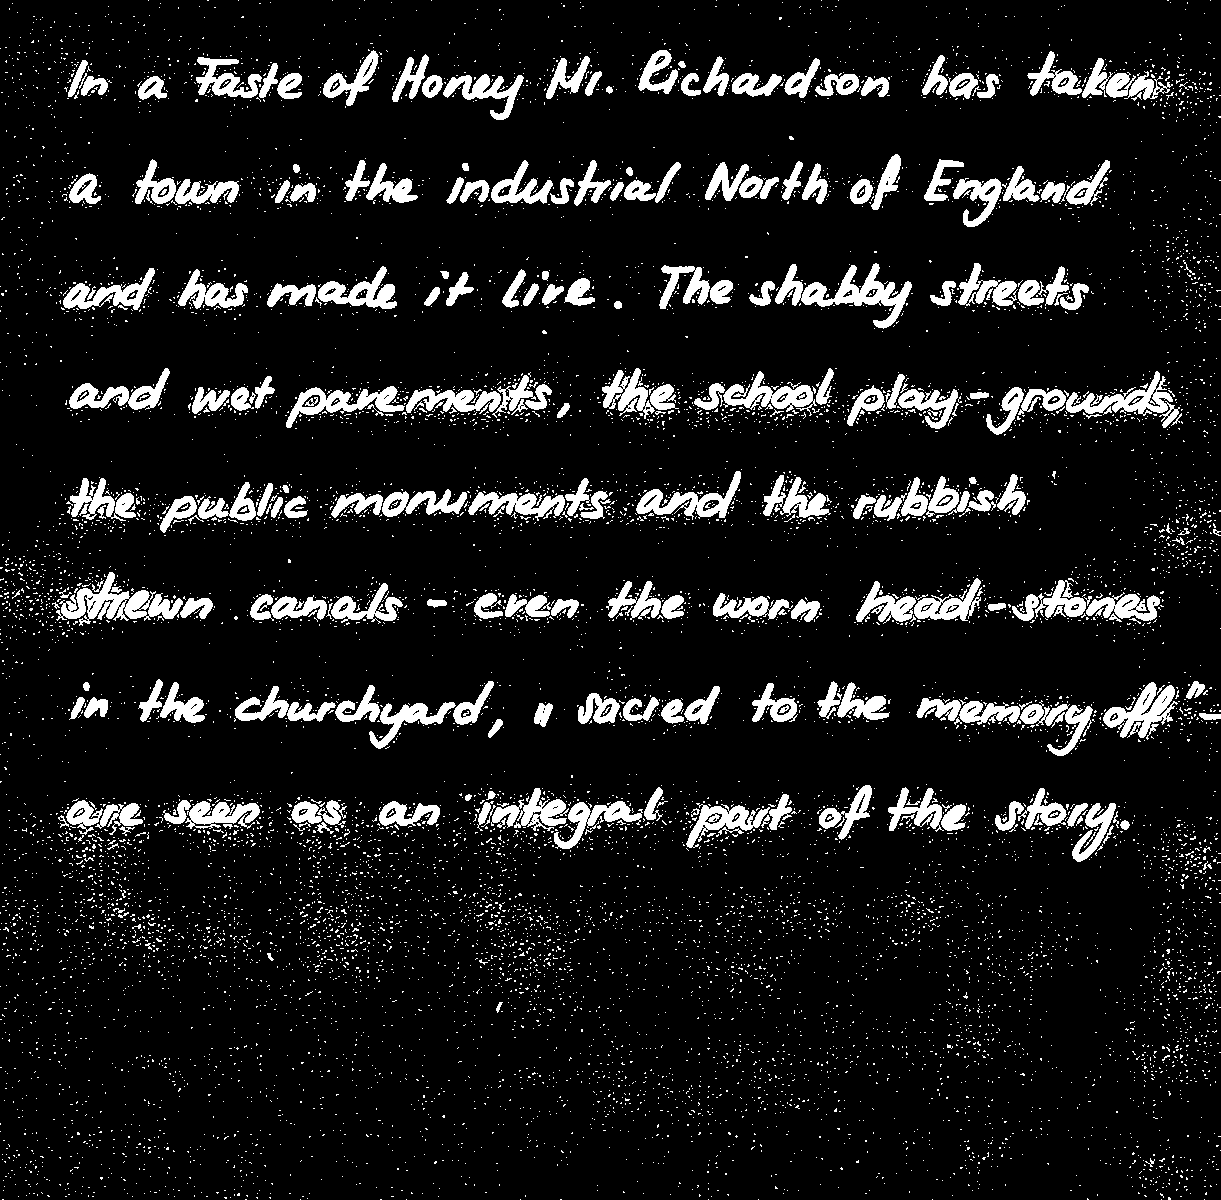 In a Taste of Honey Mr. Richardson has taken
a town in the industrial North of England
and has made it live. The shabby streets
and wet pavements, the school play-grounds,
the public monuments and the rubbish
strewn canals - even the worn head-stones
in the churchyard, "sacred to the memory off" -
are seen as an integral part of the story.